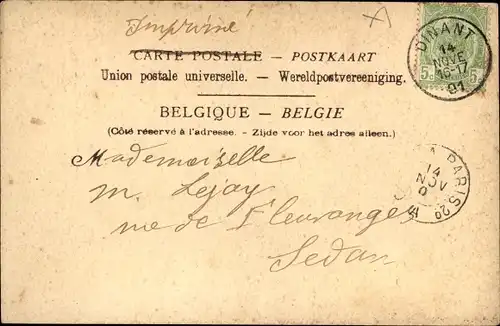 Imprimé
CARTE POSTALE — POSTKAART
Union postale universelle. — Wereldpostvereeniging.
BELGIQUE — BELGIE
(Côté réservé à l'adresse. — Zijde voor het adres alleen.)
DINANT
14
NOVE
16-17
01
5c 5c
Mademoiselle
M. Lejay
rue de Fleuranges
Sedan
PARIS
14
NOV